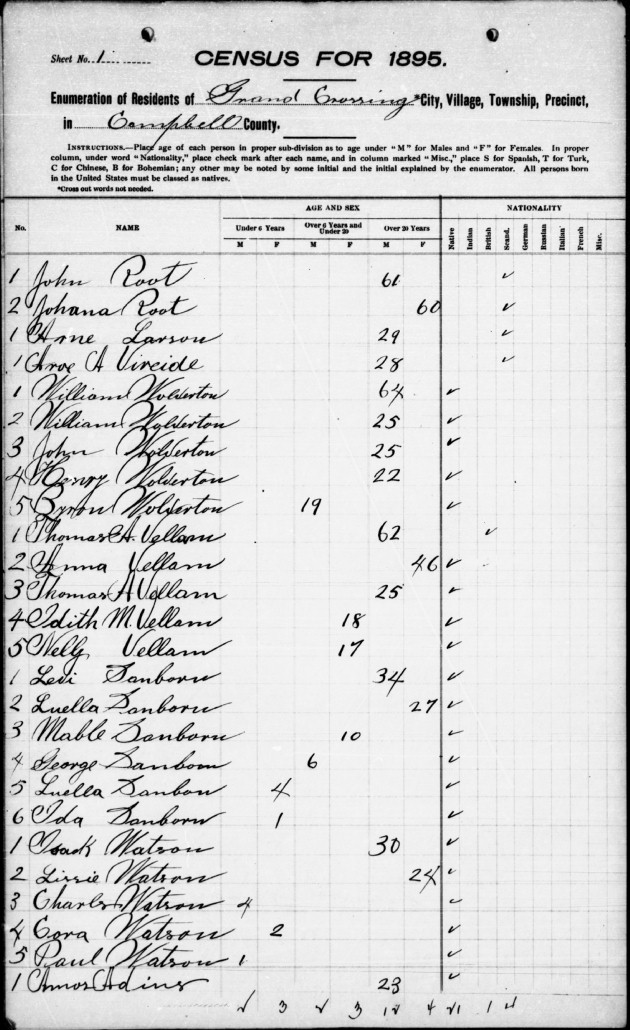 Sheet No. 1
CENSUS FOR 1895.
Enumeration of Residents of Grand Crossing *City, Village, Township, Precinct,
in Campbell County.
INSTRUCTIONS.—Place age of each person in proper sub-division as to age under "M" for Males and "F" for Females. In proper
column, under word "Nationality," place check mark after each name, and in column marked "Misc.," place S for Spanish, T for Turk,
C for Chinese, B for Bohemian; any other may be noted by some initial and the initial explained by the enumerator. All persons born
in the United States must be classed as natives.
*Cross out words not needed.
AGE AND SEX NATIONALITY
No. NAME Under 6 Years Over 6 Years and Under 20 Over 20 Years Native Indian British Scand. German Russian Italian French Misc.
M F M F M F
1 John Root 61 ✓
2 Johana Root 60 ✓
1 Arne Larson 29 ✓
1 Arve A 28 ✓
1 William Wolverton 64 ✓
2 William Wolverton 25 ✓
3 John Wolverton 25 ✓
4 Henry Wolverton 22 ✓
5 Byron Wolverton 19 ✓
1 Thomas A. Vellam 62 ✓
2 Anna Vellam 46 ✓
3 Thomas A Vellam 25 ✓
4 Edith M. Vellam 18 ✓
5 Nelly Vellam 17 ✓
1 Levi Sanborn 34 ✓
2 Luella Sanborn 27 ✓
3 Mable Sanborn 10 ✓
4 George Sanborn 6 ✓
5 Luella Sanborn 4 ✓
6 Ida Sanborn 1 ✓
1 Isack Watson 30 ✓
2 Lizzie Watson 24 ✓
3 Charls Watson 4 ✓
4 Cora Watson 2 ✓
5 Paul Watson 1 ✓
1 Amos Adins 23 ✓
2 3 2 3 12 4 21 1 4